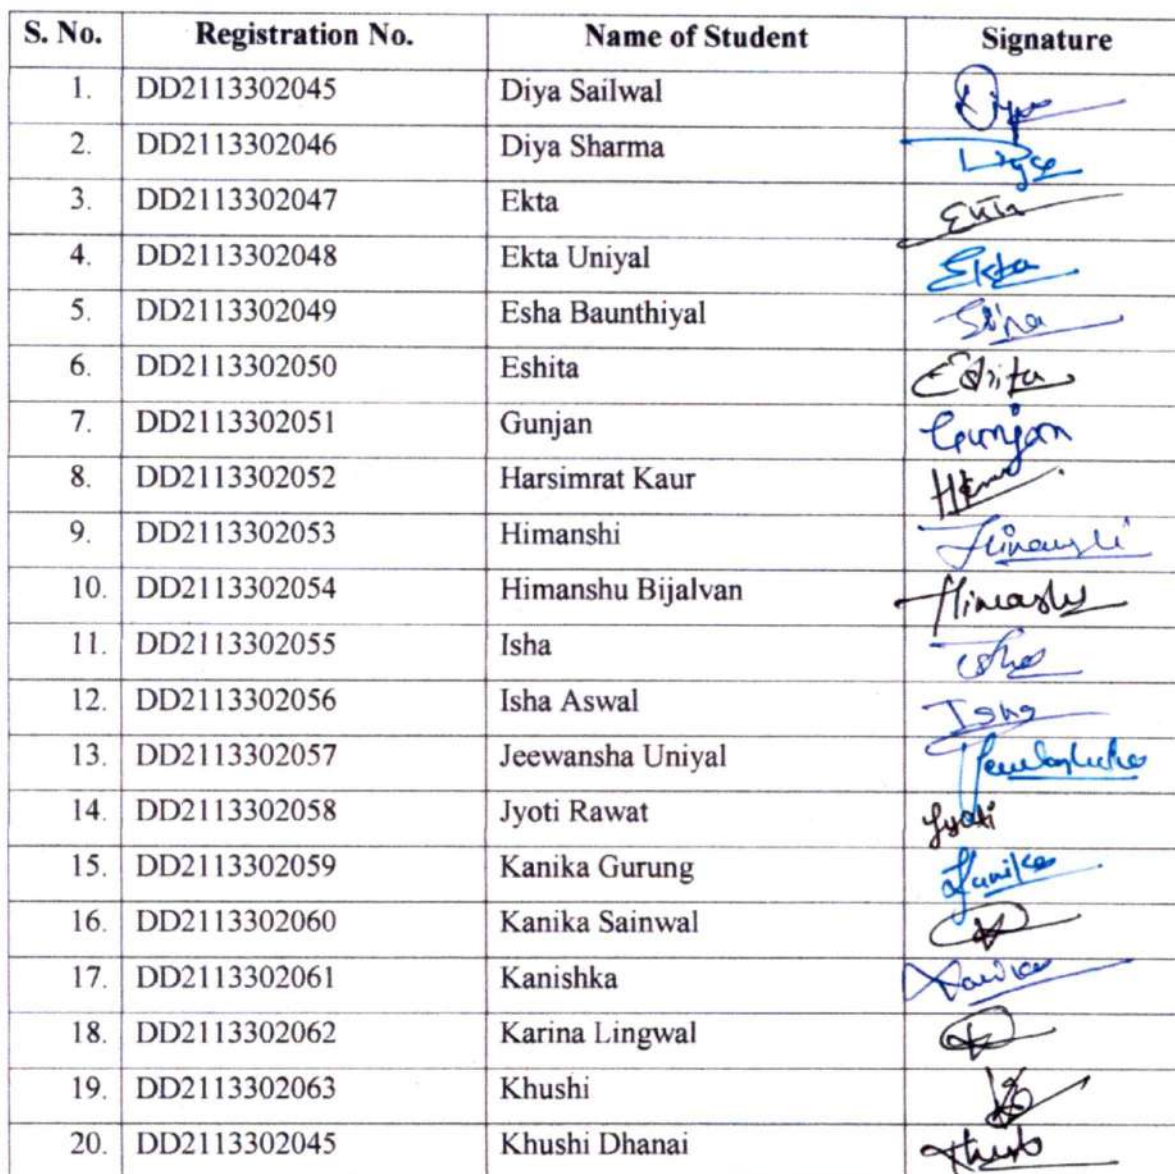 S. No. Registration No. Name of Student Signature
1. DD2113302045 Diya Sailwal Diya
2. DD2113302046 Diya Sharma Diya
3. DD2113302047 Ekta Ekta
4. DD2113302048 Ekta Uniyal Ekta
5. DD2113302049 Esha Baunthiyal
6. DD2113302050 Eshita Eshita
7. DD2113302051 Gunjan Gunjan
8. DD2113302052 Harsimrat Kaur
9. DD2113302053 Himanshi Himanshi
10. DD2113302054 Himanshu Bijalvan
11. DD2113302055 Isha Isha
12. DD2113302056 Isha Aswal Isha
13. DD2113302057 Jeewansha Uniyal
14. DD2113302058 Jyoti Rawat Jyoti
15. DD2113302059 Kanika Gurung Kanika
16. DD2113302060 Kanika Sainwal
17. DD2113302061 Kanishka
18. DD2113302062 Karina Lingwal
19. DD2113302063 Khushi
20. DD2113302045 Khushi Dhanai